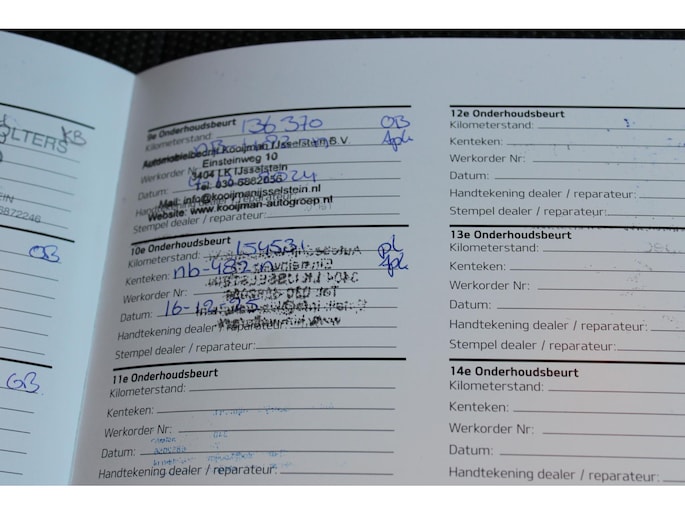 OLTERS
6872246
OB
GB
9e Onderhoudsbeurt
136370 OB
Kilometerstand:
Apk
Automobielbedrijf Kooijman IJsselstein B.V.
Einsteinweg 10
3404 LK IJsselstein
Tel. 030-6882056
Datum: 2024
Mail: info@kooijmanijsselstein.nl
Website: www.kooijman-autogroep.nl
Stempel dealer / reparateur:
10e Onderhoudsbeurt
Kilometerstand: 154531
Apk
Kenteken: nb-482-n
Werkorder Nr:
Datum: 16-12-25
Handtekening dealer / reparateur:
Stempel dealer / reparateur:
11e Onderhoudsbeurt
Kilometerstand:
Kenteken:
Werkorder Nr:
Datum:
Handtekening dealer / reparateur:
12e Onderhoudsbeurt
Kilometerstand:
Kenteken:
Werkorder Nr:
Datum:
Handtekening dealer / reparateur:
Stempel dealer / reparateur:
13e Onderhoudsbeurt
Kilometerstand:
Kenteken:
Werkorder Nr:
Datum:
Handtekening dealer / reparateur:
Stempel dealer / reparateur:
14e Onderhoudsbeurt
Kilometerstand:
Kenteken:
Werkorder Nr:
Datum:
Handtekening dealer / reparateur: